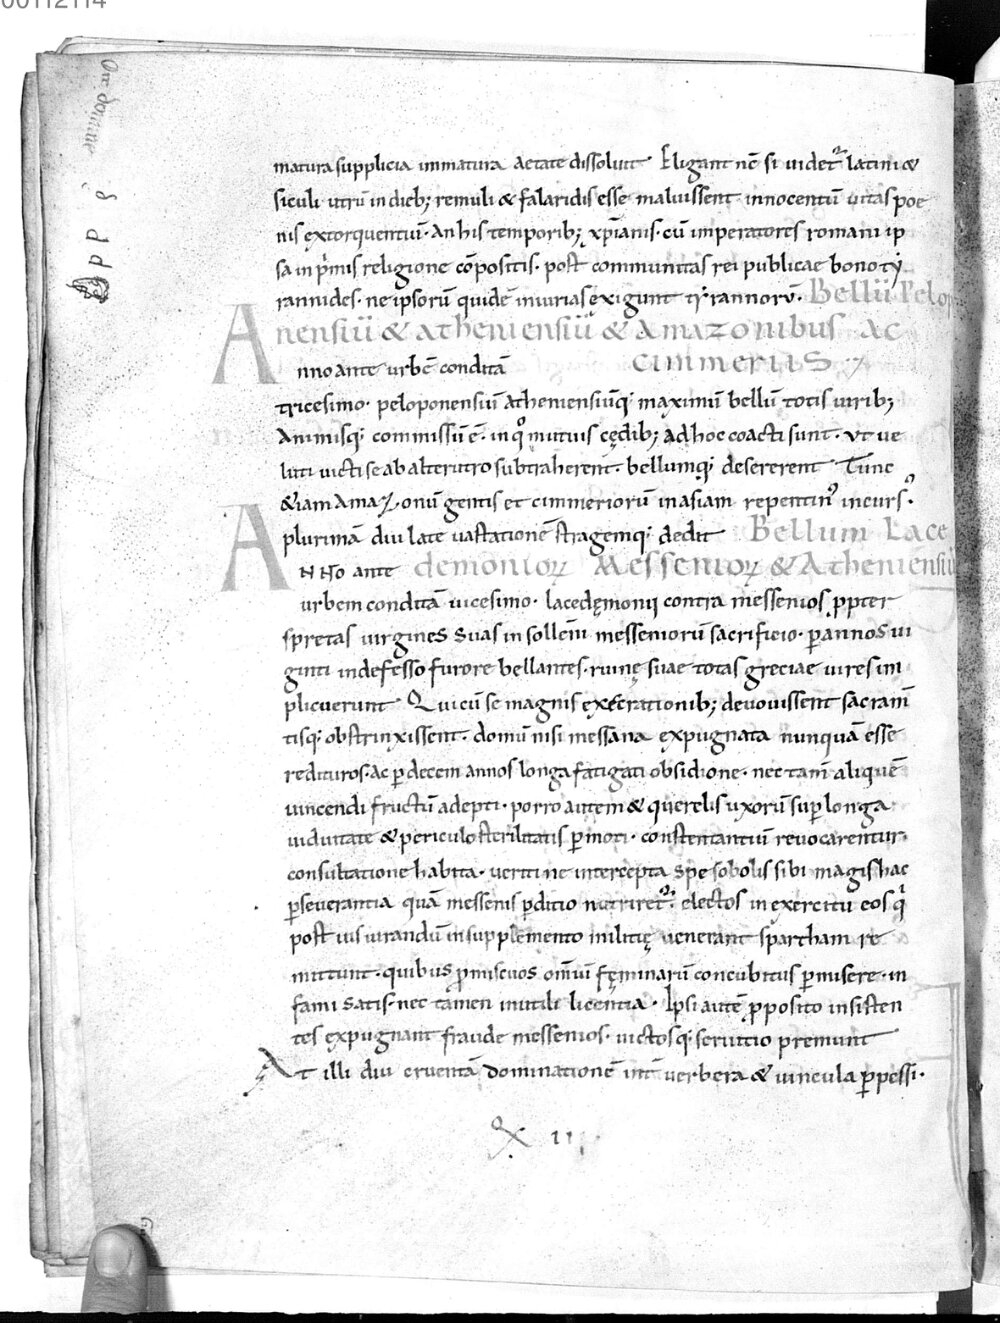 00112114
Om domine
matura supplicia inmatura aetate dissoluit. Eligant nc̄ si uidet᷑ latini &
siculi utrū in dieb; remuli & falaridis esse maluissent innocentū uitas poe
nis extorquentiū· An his temporib; xp̄ianis· cū imperatores romani ip
sa in p̄mis religione cōpositis· post communitas rei publicae bono ty
rannides· ne ipsorū quidē iniurias exigunt tyrannorū· Bellū Pelop
nensiū & atheniensiū & amazonibus ac
Anno ante urbē conditā cimmeriis
tricesimo· peloponensiū atheniensiūq; maximū bellū totis uirib;
animisq; commissū ē· in qͦ mutuis cędib; ad hoc coacti sunt· Vt ue
luti uicti se ab alterutro subtraherent· bellumq; desererent Tunc
&iam amazonū gentis et cimmeriorū in asiam repentin᾿ incurs᾿·
plurimā diu late uastationē stragemq; dedit Bellum Lace
ANNo ante demonioꝝ Messenioꝝ & Atheniensiū
urbem conditā uicesimo· lacedęmonii contra messenios ꝓpter
spretas uirgines suas in sollēni messeniorū sacrificio· ꝑ annos ui
ginti indefesso furore bellantes· ruinę suae totas greciae uires im
plicuerunt Qui cū se magnis execrationib; deuouissent sacram̄
tisq; obstrinxissent· domū nisi messana expugnata nunquā esse
redituros· ac ꝑ decem annos longa fatigati obsidione· nec tam̄ aliquē
uincendi fructū adepti· porro autem & querelis uxorū suꝑ longa
uiduitate & periculo sterilitatis ꝑmoti· constentantiū reuocarentur·
consultatione habita· ueriti ne intercępta spe sobolis sibi magis hac
ꝑseuerantia quā messenis ꝑditio nutriret᷑· electos in exercitu eos qͥ
post ius iurandū in supplemento militię uenerant spartham re
mittunt· quibus ꝓmiscuos omīu fęminarū concubitus ꝑmisere· in
fami satis· nec tamen inutili licentia· Ipsi autē ꝓposito insisten
tes expugnant fraude messenios· uictosq; seruitio premunt
At illi diu cruentā dominationē int̄ uerbera & uincula ꝑpessi·